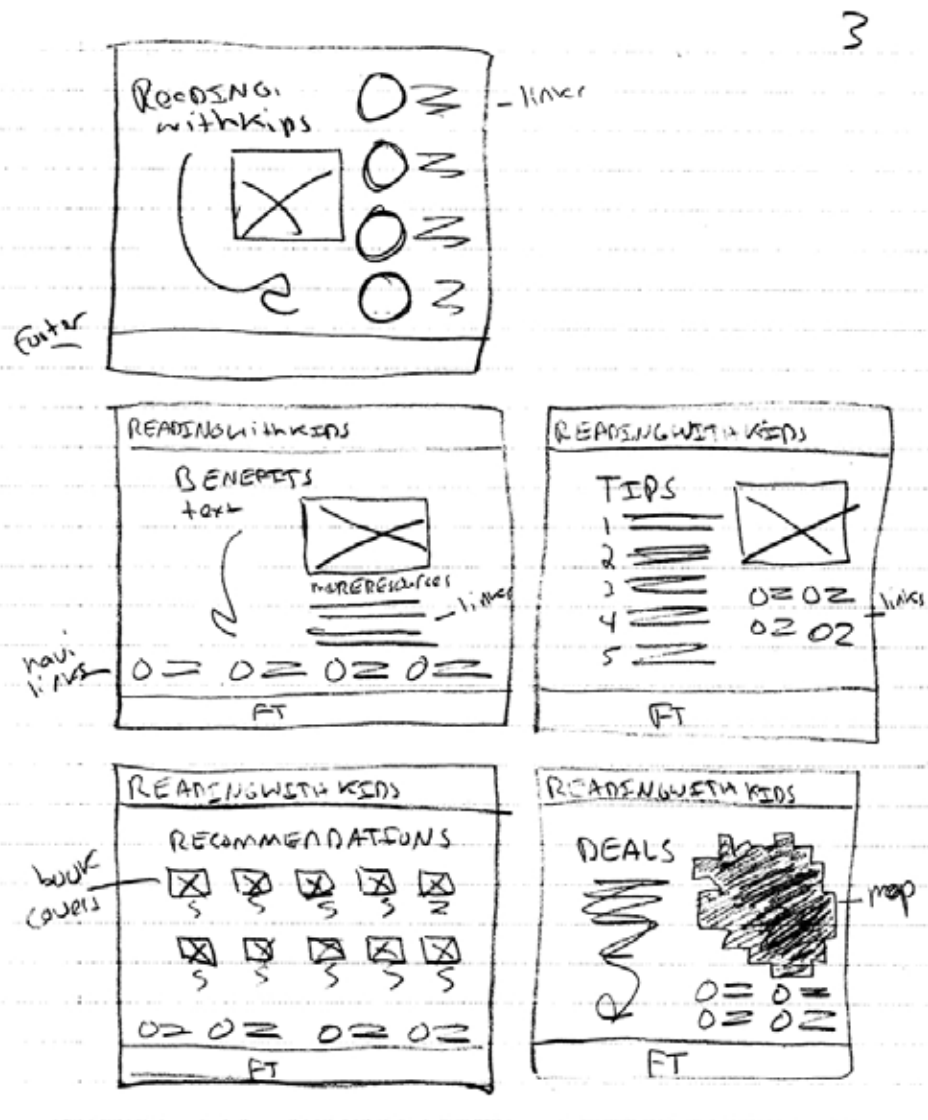 3
READING
withKids
links
Footer
READINGwithKIDS
BENEFITS
text
MORERESOURCES
links
navi
links
FT
READINGWITHKIDS
TIPS
1
2
3
4
5
links
FT
READINGWITHKIDS
RECOMMENDATIONS
book
covers
FT
READINGWITHKIDS
DEALS
map
FT